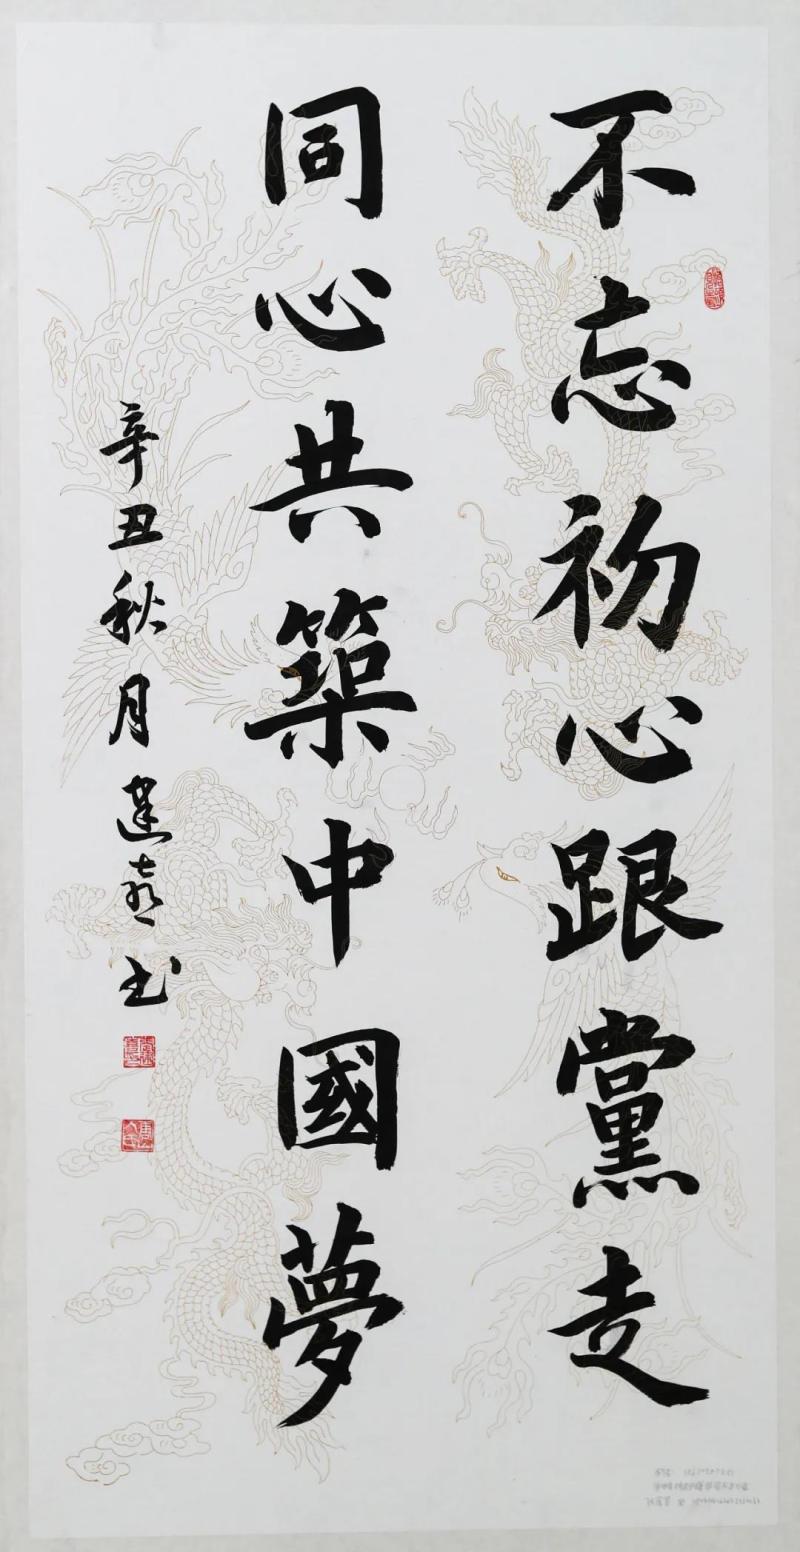 不忘初心跟黨走
同心共築中國夢
辛丑秋月建意书